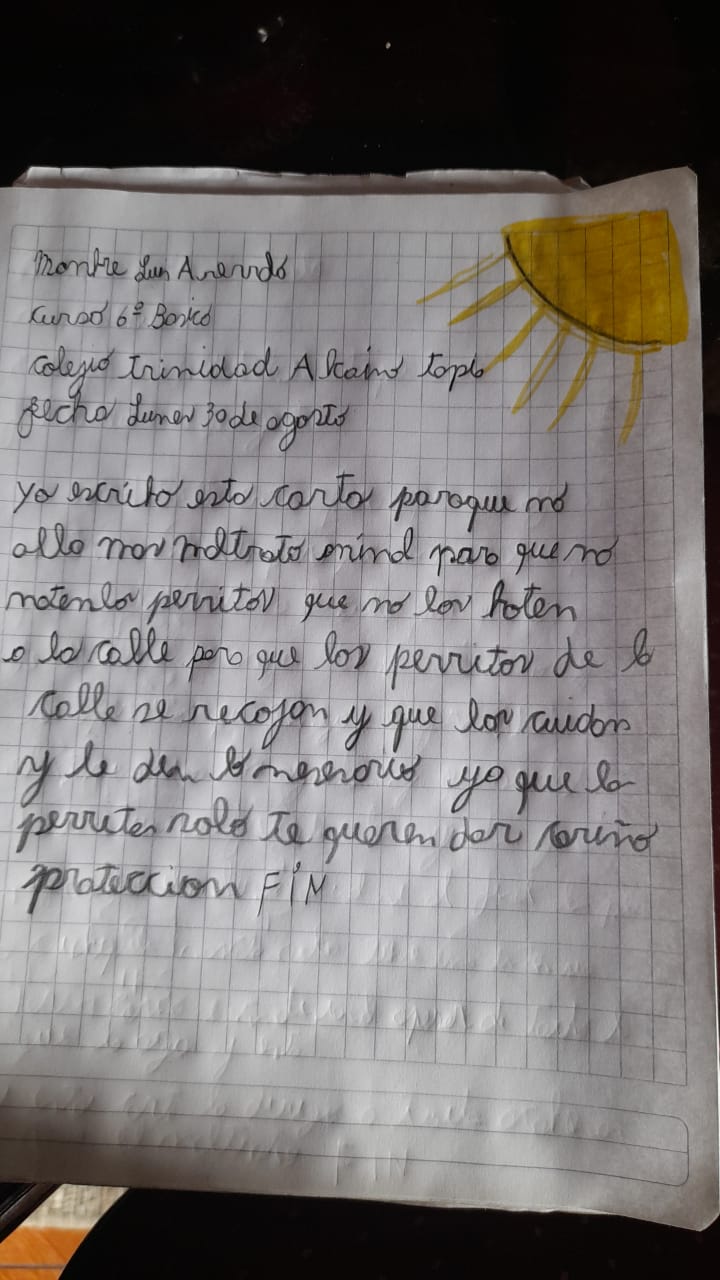 Luis Acevedo
Curso 6º Basico
Colegio Trinidad
fecha Lunes 30 de agosto
yo escribo esta carta paraque no
alla mas maltrato para que no
maten los perritos que no los boten
a la calle para que los perritos de la
calle se recojan y que los cuidan
y le den ya que lo
perrites solo te queren dar cariño
proteccion FIN